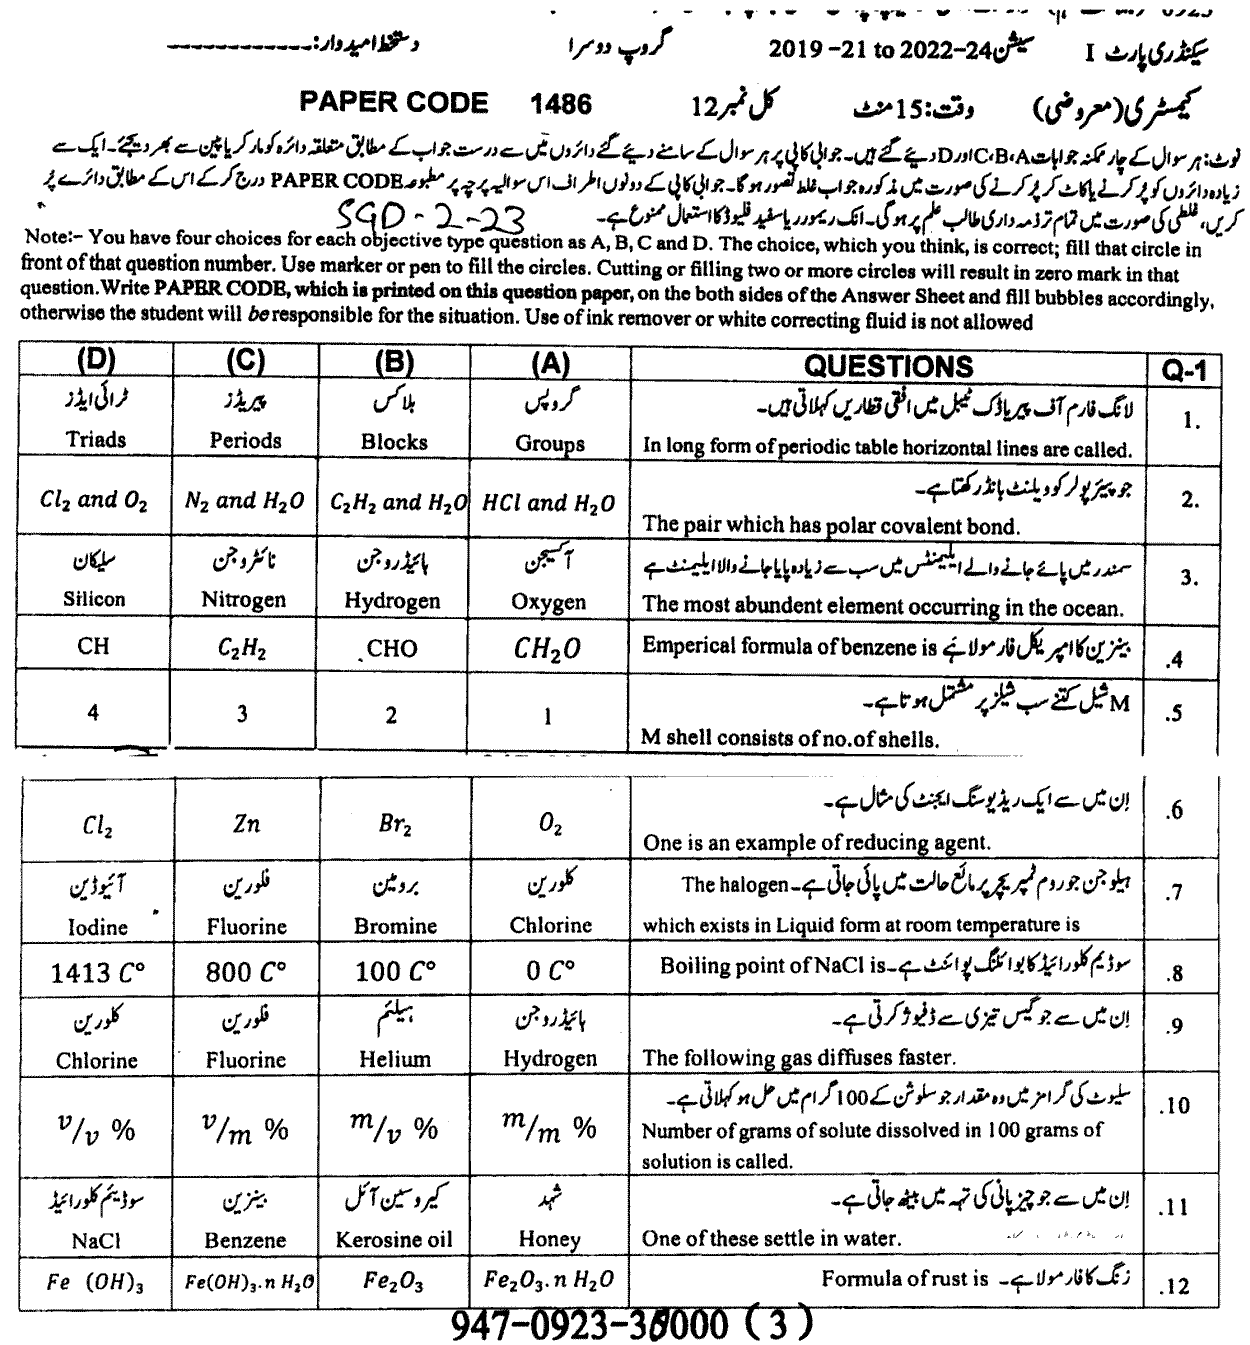 سیکنڈری پارٹ I سیشن 2019 -21 to 2022-24 گروپ دوسرا دستخط امیدوار:------------
کیمسٹری (معروضی) وقت: 15 منٹ کل نمبر 12 PAPER CODE 1486
نوٹ: ہر سوال کے چار ممکنہ جوابات C،B،A اور D دیے گئے ہیں۔ جوابی کاپی پر ہر سوال کے سامنے دیے گئے دائروں میں سے درست جواب کے مطابق متعلقہ دائرہ کو مارکر یا پین سے بھر دیجئے۔ ایک سے
زیادہ دائروں کو پُر کرنے یا کاٹ کر پُر کرنے کی صورت میں مذکورہ جواب غلط تصور ہوگا۔ جوابی کاپی کے دونوں اطراف اس سوالیہ پرچہ پر مطبوعہ PAPER CODE درج کر کے اس کے مطابق دائرے پُر
کریں، غلطی کی صورت میں تمام تر ذمہ داری طالب علم پر ہوگی۔ انک ریموور یا سفید فلیوڈ کا استعمال ممنوع ہے۔ SGD-2-23
Note:- You have four choices for each objective type question as A, B, C and D. The choice, which you think, is correct; fill that circle in
front of that question number. Use marker or pen to fill the circles. Cutting or filling two or more circles will result in zero mark in that
question. Write PAPER CODE, which is printed on this question paper, on the both sides of the Answer Sheet and fill bubbles accordingly,
otherwise the student will be responsible for the situation. Use of ink remover or white correcting fluid is not allowed
(D) (C) (B) (A) QUESTIONS Q-1
ٹرائی ایڈز پیریڈز بلاکس گروپس لانگ فارم آف پیریاڈک ٹیبل میں افقی قطاریں کہلاتی ہیں۔ 1.
Triads Periods Blocks Groups In long form of periodic table horizontal lines are called.
جو پیئر پولر کوویلنٹ بانڈ رکھتا ہے۔ 2.
Cl₂ and O₂ N₂ and H₂O C₂H₂ and H₂O HCl and H₂O The pair which has polar covalent bond.
سلیکان نائٹروجن ہائیڈروجن آکسیجن سمندر میں پائے جانے والے ایلیمنٹس میں سب سے زیادہ پایا جانے والا ایلیمنٹ ہے 3.
Silicon Nitrogen Hydrogen Oxygen The most abundent element occurring in the ocean.
CH C₂H₂ CHO CH₂O Emperical formula of benzene is بینزین کا امپیریکل فارمولا ہے .4
M شیل کتنے سب شیلز پر مشتمل ہوتا ہے۔ .5
4 3 2 1 M shell consists of no.of shells.
اِن میں سے ایک ریڈیوسنگ ایجنٹ کی مثال ہے۔ .6
Cl₂ Zn Br₂ O₂ One is an example of reducing agent.
آئیوڈین فلورین برومین کلورین ہیلوجن جو روم ٹمپریچر پر مائع حالت میں پائی جاتی ہے۔ The halogen .7
Iodine Fluorine Bromine Chlorine which exists in Liquid form at room temperature is
1413 C° 800 C° 100 C° 0 C° Boiling point of NaCl is سوڈیم کلورائیڈ کا بوائلنگ پوائنٹ ہے۔ .8
کلورین فلورین ہیلئم ہائیڈروجن اِن میں سے جو گیس تیزی سے ڈفیوز کرتی ہے۔ .9
Chlorine Fluorine Helium Hydrogen The following gas diffuses faster.
سلیوٹ کی گرامز میں وہ مقدار جو سلوشن کے 100 گرام میں حل ہو کہلاتی ہے۔ .10
v/v % v/m % m/v % m/m % Number of grams of solute dissolved in 100 grams of
solution is called.
سوڈیم کلورائیڈ بینزین کیروسین آئل شہد اِن میں سے جو چیز پانی کی تہہ میں بیٹھ جاتی ہے۔ .11
NaCl Benzene Kerosine oil Honey One of these settle in water.
Fe (OH)₃ Fe(OH)₃.n H₂O Fe₂O₃ Fe₂O₃.n H₂O Formula of rust is زنگ کا فارمولا ہے۔ .12
947-0923-36000 (3)